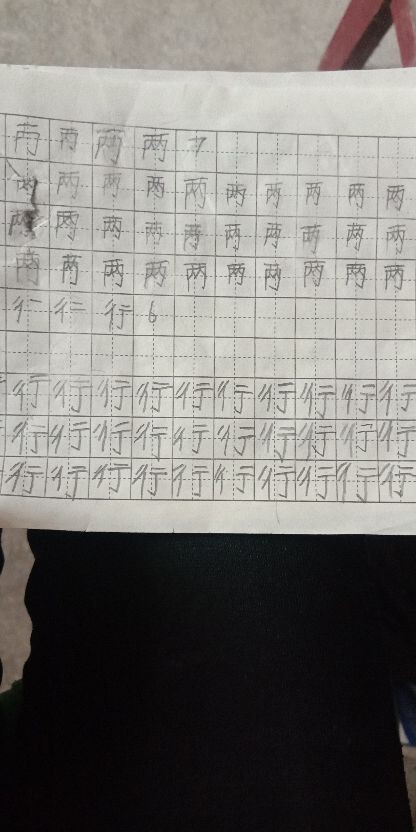 两 两 两 两 7
两 两 两 两 两 两 两 两 两 两
两 两 两 两 两 两 两 两 两 两
两 两 两 两 两 两 两 两 两 两
行 行 行 6
行 行 行 行 行 行 行 行 行 行
行 行 行 行 行 行 行 行 行 行
行 行 行 行 行 行 行 行 行 行